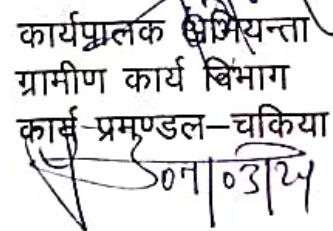 कार्यपालक अभियन्ता
ग्रामीण कार्य विभाग
कार्य प्रमण्डल-चकिया
07/03/24